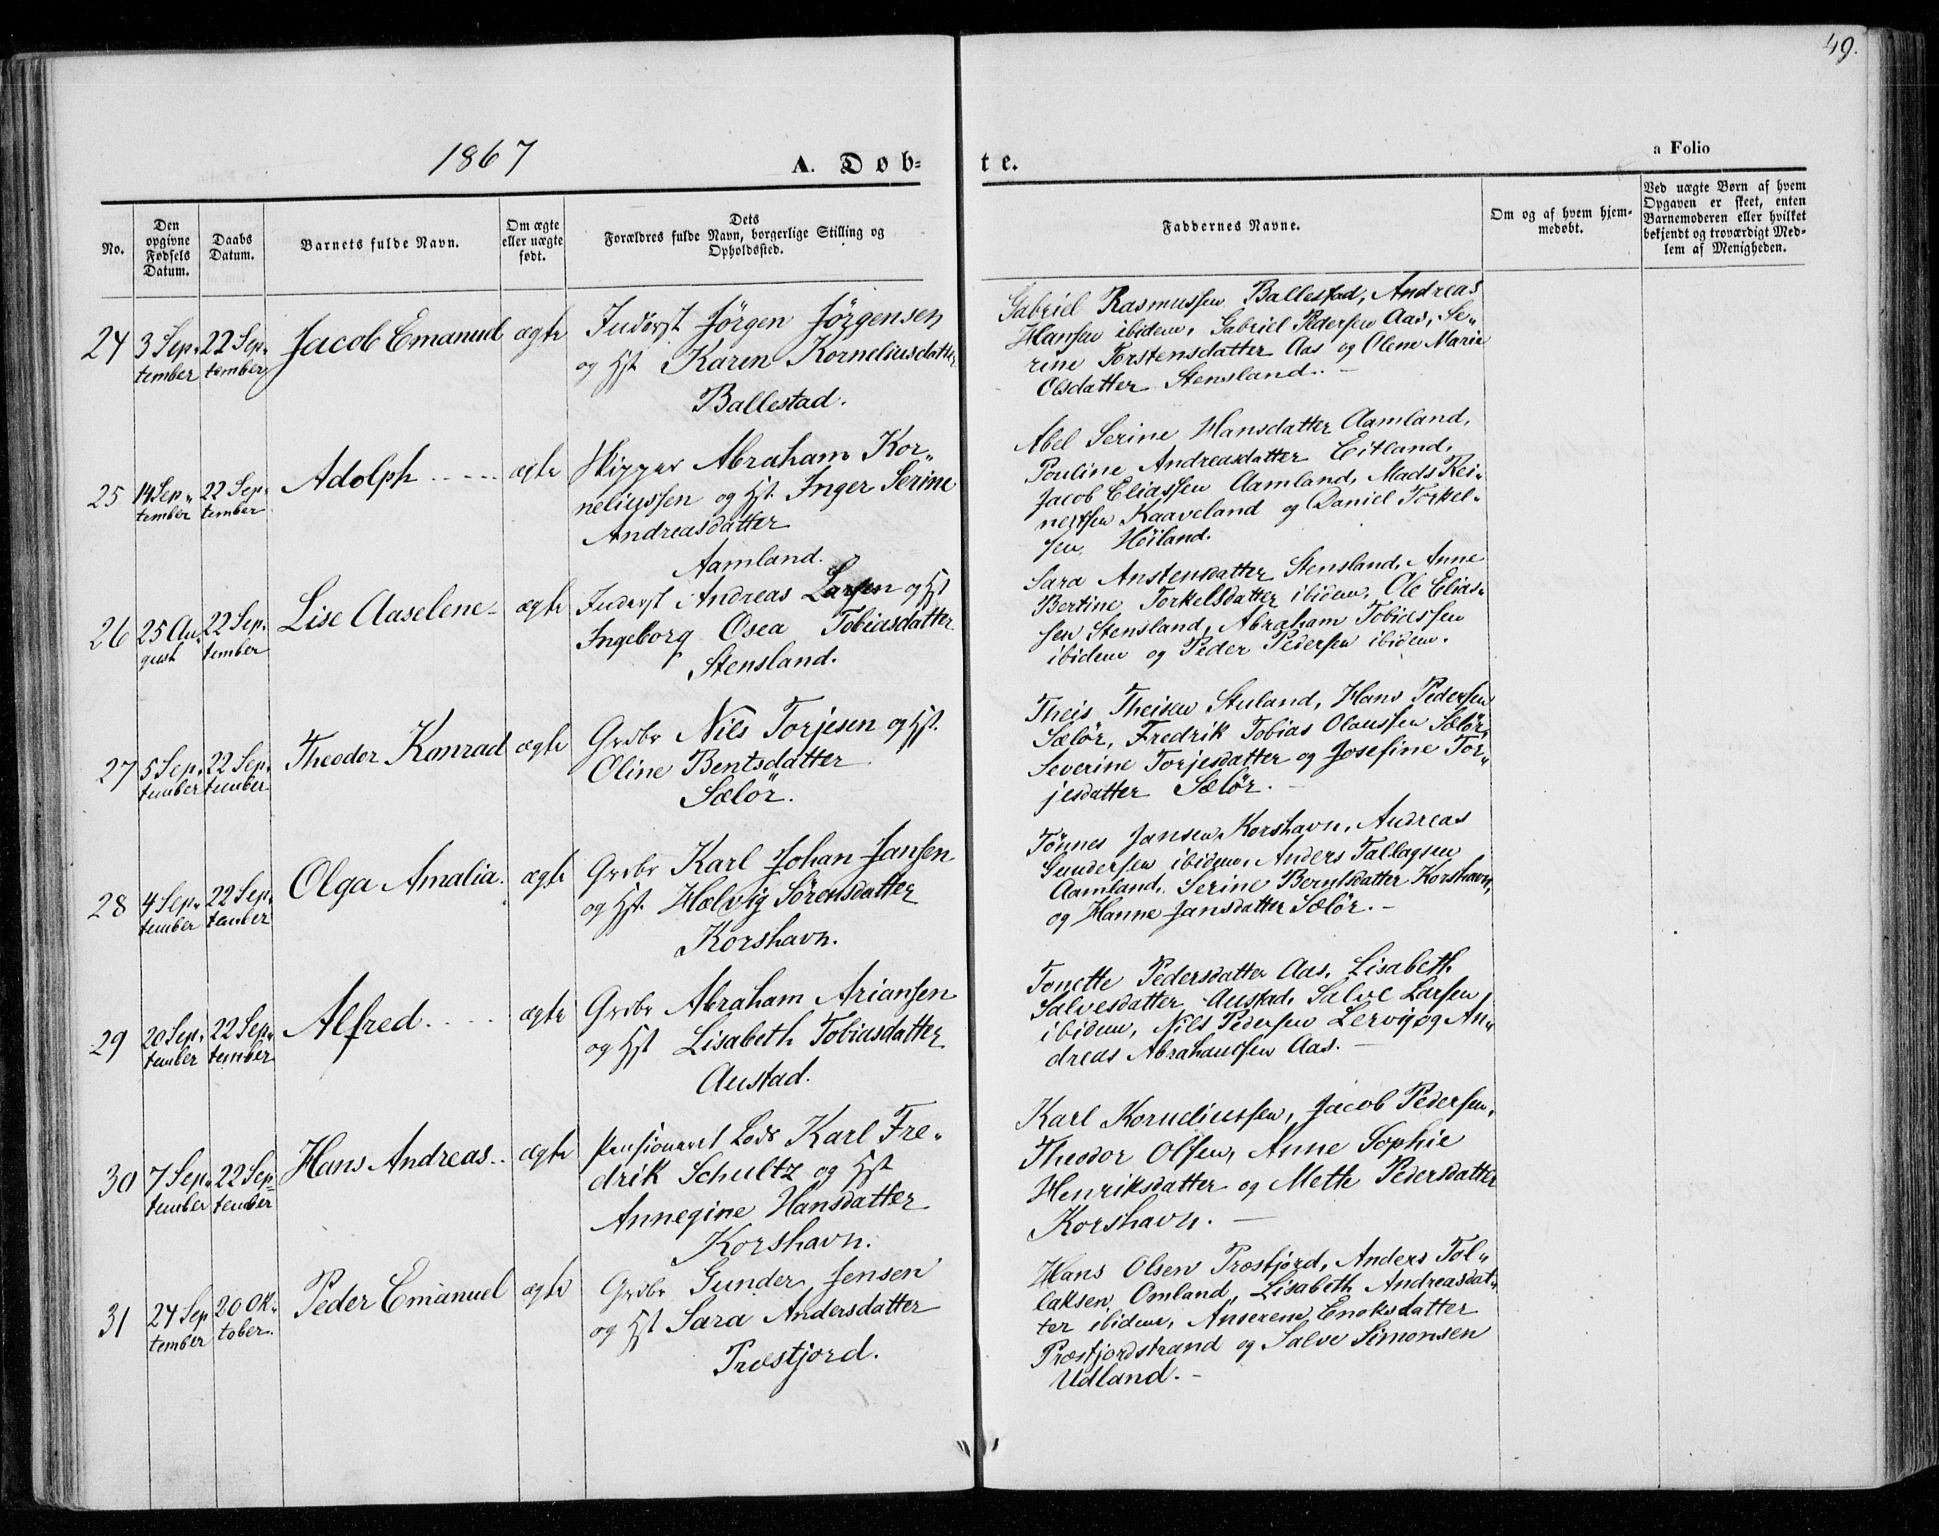 49.
1867
A. Døb-
te.
a Folio
No.
Den
opgivne
Fødsels
Datum.
Daabs
Datum.
Barnets fulde Navn.
Om ægte
eller uægte
født.
Dets
Forældres fulde Navn, borgerlige Stilling og
Opholdssted.
Faddernes Navne.
Om og af hvem hjem-
medøbt.
Ved uægte Børn af hvem
Opgaven er skeet, enten
Barnemoderen eller hvilket
bekjendt og troværdigt Med-
lem af Menigheden.
24 3 Sep- 22 Sep- Jacob Emanuel ægte Inderst Jørgen Jørgensen
tember tember og Hst Karen Korneliusdatter
Ballestad.
Gabriel Rasmussen Ballestad, Andreas
Hansen ibidem, Gabriel Pedersen Aas, Se-
rine Torstensdatter Aas og Olene Marie
Olsdatter Stensland. -
25 14 Sep- 22 Sep- Adolph ..... ægte Skipper Abraham Kor-
tember tember neliussen og Hst Inger Serine
Andreasdatter
Aamland.
Abel Serine Hansdatter Aamland,
Pouline Andreasdatter Eitland,
Jacob Eliassen Aamland, Mads Rei-
nertsen Kaaveland og Daniel Torkel-
sen Høiland.
26 25 Au- 22 Sep- Lise Aaselene - ægte Inderst Andreas Larsen og Hst
gust tember Ingeborg Osea Tobiasdatter
Stensland.
Sara Anstensdatter Stensland, Anne
Bertine Torkelsdatter ibidem, Ole Elias-
sen Stensland, Abraham Tobiassen
ibidem og Peder Pedersen ibidem.
27 5 Sep- 22 Sep- Theodor Konrad ægte Grdbr Nils Torjesen og Hst.
tember tember Oline Bentsdatter
Sælør.
Theis Theisen Stuland, Hans Pedersen
Sælør, Fredrik Tobias Olaussen Sælør,
Severine Torjesdatter og Josefine Tor-
jesdatter Sælør. -
28 4 Sep- 22 Sep- Olga Amalia. ægte Grdbr Karl Johan Jansen
tember tember og Hst. Hælvig Sørensdatter
Korshavn.
Tønnes Jansen Korshavn, Andreas
Gundersen ibidem, Anders Tallagsen
Aamland, Serine Berntsdatter Korshavn,
og Hanne Jansdatter Sælør. -
29 20 Sep- 22 Sep- Alfred .... ægte Grdbr Abraham Ariansen
tember tember og Hst Lisabeth Tobiasdatter
Austad.
Tonette Pedersdatter Aas, Lisabeth
Salvesdatter Austad, Salve Larsen
ibidem, Nils Pedersen Lervig og An-
dreas Abrahamsen Aas. -
30 7 Sep- 22 Sep- Hans Andreas .. ægte Pensioneret Lods Karl Fre-
tember tember drik Schultz og Hst
Annegine Hansdatter
Korshavn.
Karl Korneliussen, Jacob Pedersen,
Theodor Olsen, Anne Sophie
Henriksdatter og Mette Pedersdatter
Korshavn. -
31 24 Sep 20 Ok- Peder Emanuel ægte Grdbr Gunder Jensen
tember tober. og Hst Sara Andersdatter
Præstjord.
Hans Olsen Præstjord, Anders Tol-
laksen Omland, Lisabeth Andreasdat-
ter ibidem, Anserene Enoksdatter
Præstjordstrand og Salve Simonsen
Udland. -